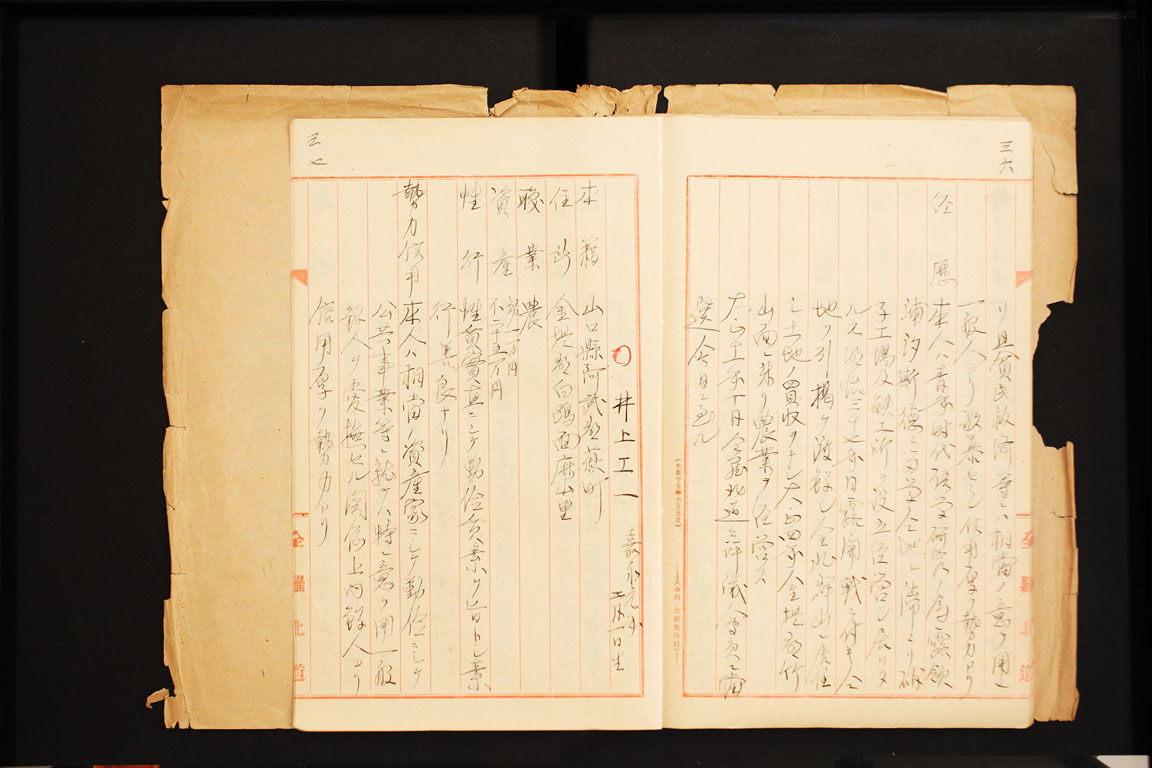 三六
リ且貧民救済等ニハ相當ノ意ヲ用ヒ
一般人ヨリ敬慕セラレ信用厚ク勢力アリ
経歴 本人ハ青年時代語学研究ノ為露領
浦汐斯徳ニ留学シ全地ニ滞
子工場及鉄工所ヲ設立経営シ居リタ
ルモ明治三十七年日露開戦ニ付キ全
地ヲ引揚ケ渡鮮シ全北群山ニ居住
シ土地ノ買収ヲナシ大正四年金堤郡竹
山面ニ来リ農業ヲ経営ス
大正十三年十月全羅北道評議会員ニ當
選今日ニ至ル
全羅北道
三七
井上工一
嘉永元年
二月一日生
本籍 山口縣阿武郡萩町
住所 金堤郡白鴎面麻山里
職業 農
資産 動一万円
不 十五万円
性行 性質實直ニシテ勤倹質素ヲ旨トシ素
行善良ナリ
勢力信用 本人ハ相當ノ資産家ニシテ勤倹ニシテ
公共事業等ニ就テハ特ニ意ヲ用ヒ一般
鮮人ヲ愛撫セル関係上内鮮人ヨリ
信用厚ク勢力アリ
全羅北道